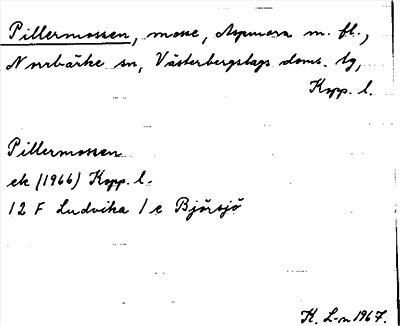 Pillermossen, mosse, Aspnora m. fl.,
Norrbärke sn, Västerbergslags doms. tg,
Kopp. l.
Pillermossen
ek (1966) Kopp. l.
12 F Ludvika 1 c Björsjö
K. L-n 1967.